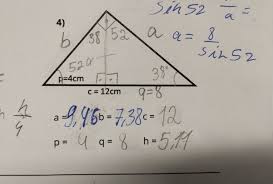 sin 52 /a =
4)
38 52
b a a = 8 / sin 52
52
p=4cm 38°
c = 12cm q=8
h/4
a = 9,46 b = 7,38 c = 12
p = 4 q = 8 h = 5,11